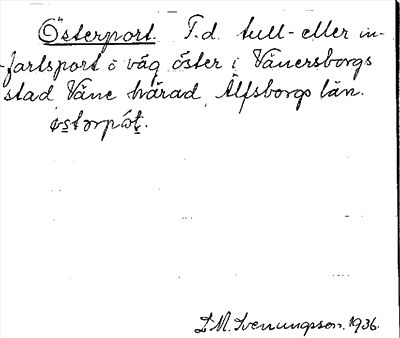 Österport. F.d. tull- eller in-
fartsport å väg öster i Vänersborgs
stad, Väne härad, Älfsborgs län.
østorpót.
D.M. Svenungsson. 1936.